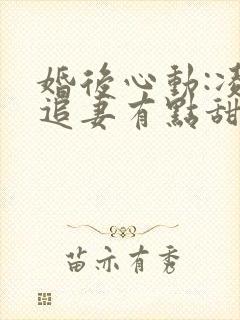 婚後心動:凌
追妻有點甜
苗亦有秀